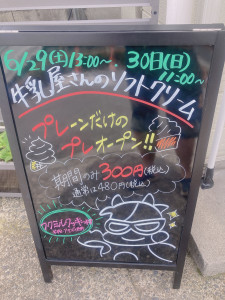 5/29(土)13:00〜、30日(日)
11:00〜
牛乳屋さんのソフトクリーム
プレーンだけの
プレオープン!!
期間のみ 300円(税込)
通常は480円(税込)